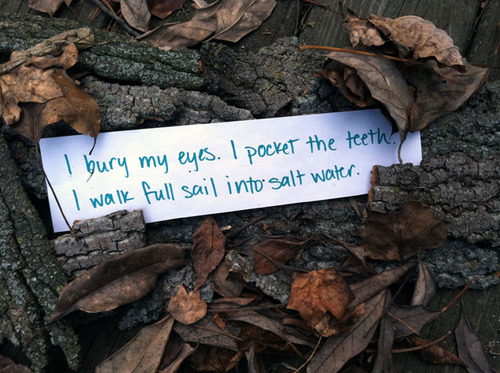 I bury my eyes. I pocket the teeth.
I walk full sail into salt water.